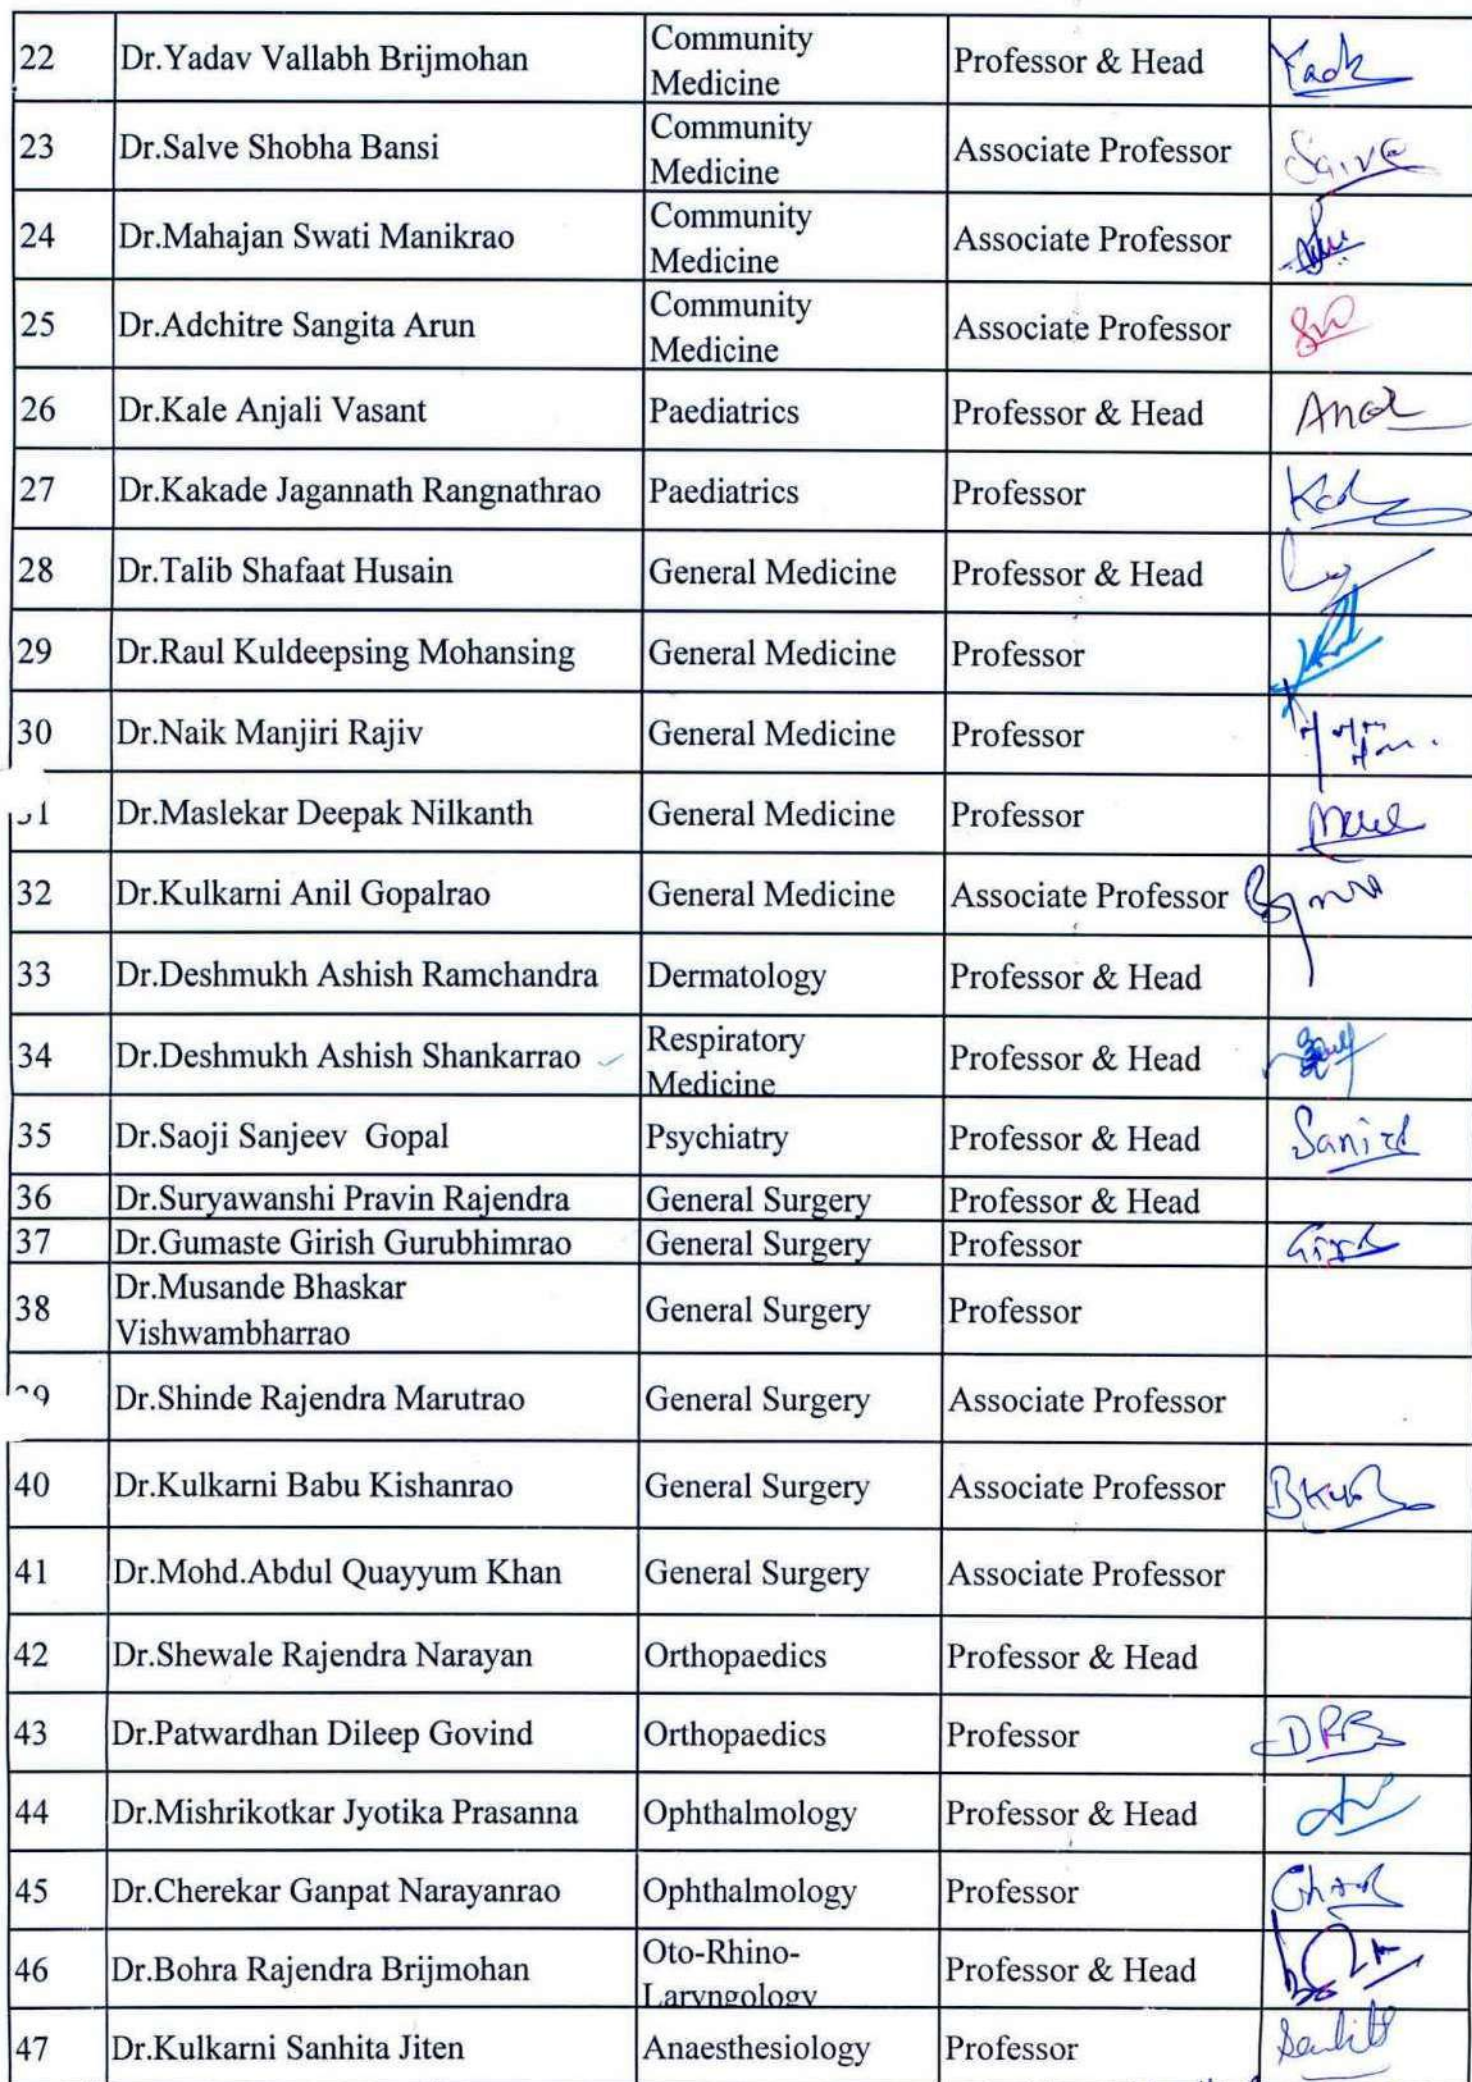 22 Dr.Yadav Vallabh Brijmohan Community Medicine Professor & Head
23 Dr.Salve Shobha Bansi Community Medicine Associate Professor Salve
24 Dr.Mahajan Swati Manikrao Community Medicine Associate Professor
25 Dr.Adchitre Sangita Arun Community Medicine Associate Professor
26 Dr.Kale Anjali Vasant Paediatrics Professor & Head
27 Dr.Kakade Jagannath Rangnathrao Paediatrics Professor
28 Dr.Talib Shafaat Husain General Medicine Professor & Head
29 Dr.Raul Kuldeepsing Mohansing General Medicine Professor
30 Dr.Naik Manjiri Rajiv General Medicine Professor
1 Dr.Maslekar Deepak Nilkanth General Medicine Professor
32 Dr.Kulkarni Anil Gopalrao General Medicine Associate Professor
33 Dr.Deshmukh Ashish Ramchandra Dermatology Professor & Head
34 Dr.Deshmukh Ashish Shankarrao Respiratory Medicine Professor & Head
35 Dr.Saoji Sanjeev Gopal Psychiatry Professor & Head
36 Dr.Suryawanshi Pravin Rajendra General Surgery Professor & Head
37 Dr.Gumaste Girish Gurubhimrao General Surgery Professor
38 Dr.Musande Bhaskar Vishwambharrao General Surgery Professor
9 Dr.Shinde Rajendra Marutrao General Surgery Associate Professor
40 Dr.Kulkarni Babu Kishanrao General Surgery Associate Professor
41 Dr.Mohd.Abdul Quayyum Khan General Surgery Associate Professor
42 Dr.Shewale Rajendra Narayan Orthopaedics Professor & Head
43 Dr.Patwardhan Dileep Govind Orthopaedics Professor
44 Dr.Mishrikotkar Jyotika Prasanna Ophthalmology Professor & Head
45 Dr.Cherekar Ganpat Narayanrao Ophthalmology Professor
46 Dr.Bohra Rajendra Brijmohan Oto-Rhino-Laryngology Professor & Head
47 Dr.Kulkarni Sanhita Jiten Anaesthesiology Professor